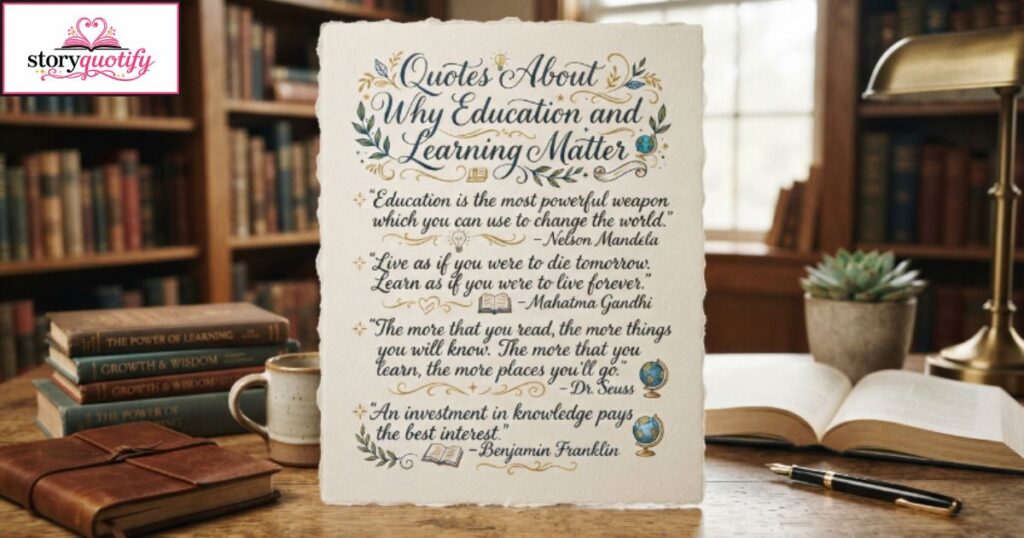 storyquotify
Quotes About
Why Education and
Learning Matter
“Education is the most powerful weapon
which you can use to change the world.”
– Nelson Mandela
“Live as if you were to die tomorrow.
Learn as if you were to live forever.”
– Mahatma Gandhi
“The more that you read, the more things
you will know. The more that you
learn, the more places you’ll go.”
– Dr. Seuss
“An investment in knowledge pays
the best interest.”
– Benjamin Franklin
THE POWER OF LEARNING
GROWTH & WISDOM
GROWTH & WISDOM
THE POWER OF